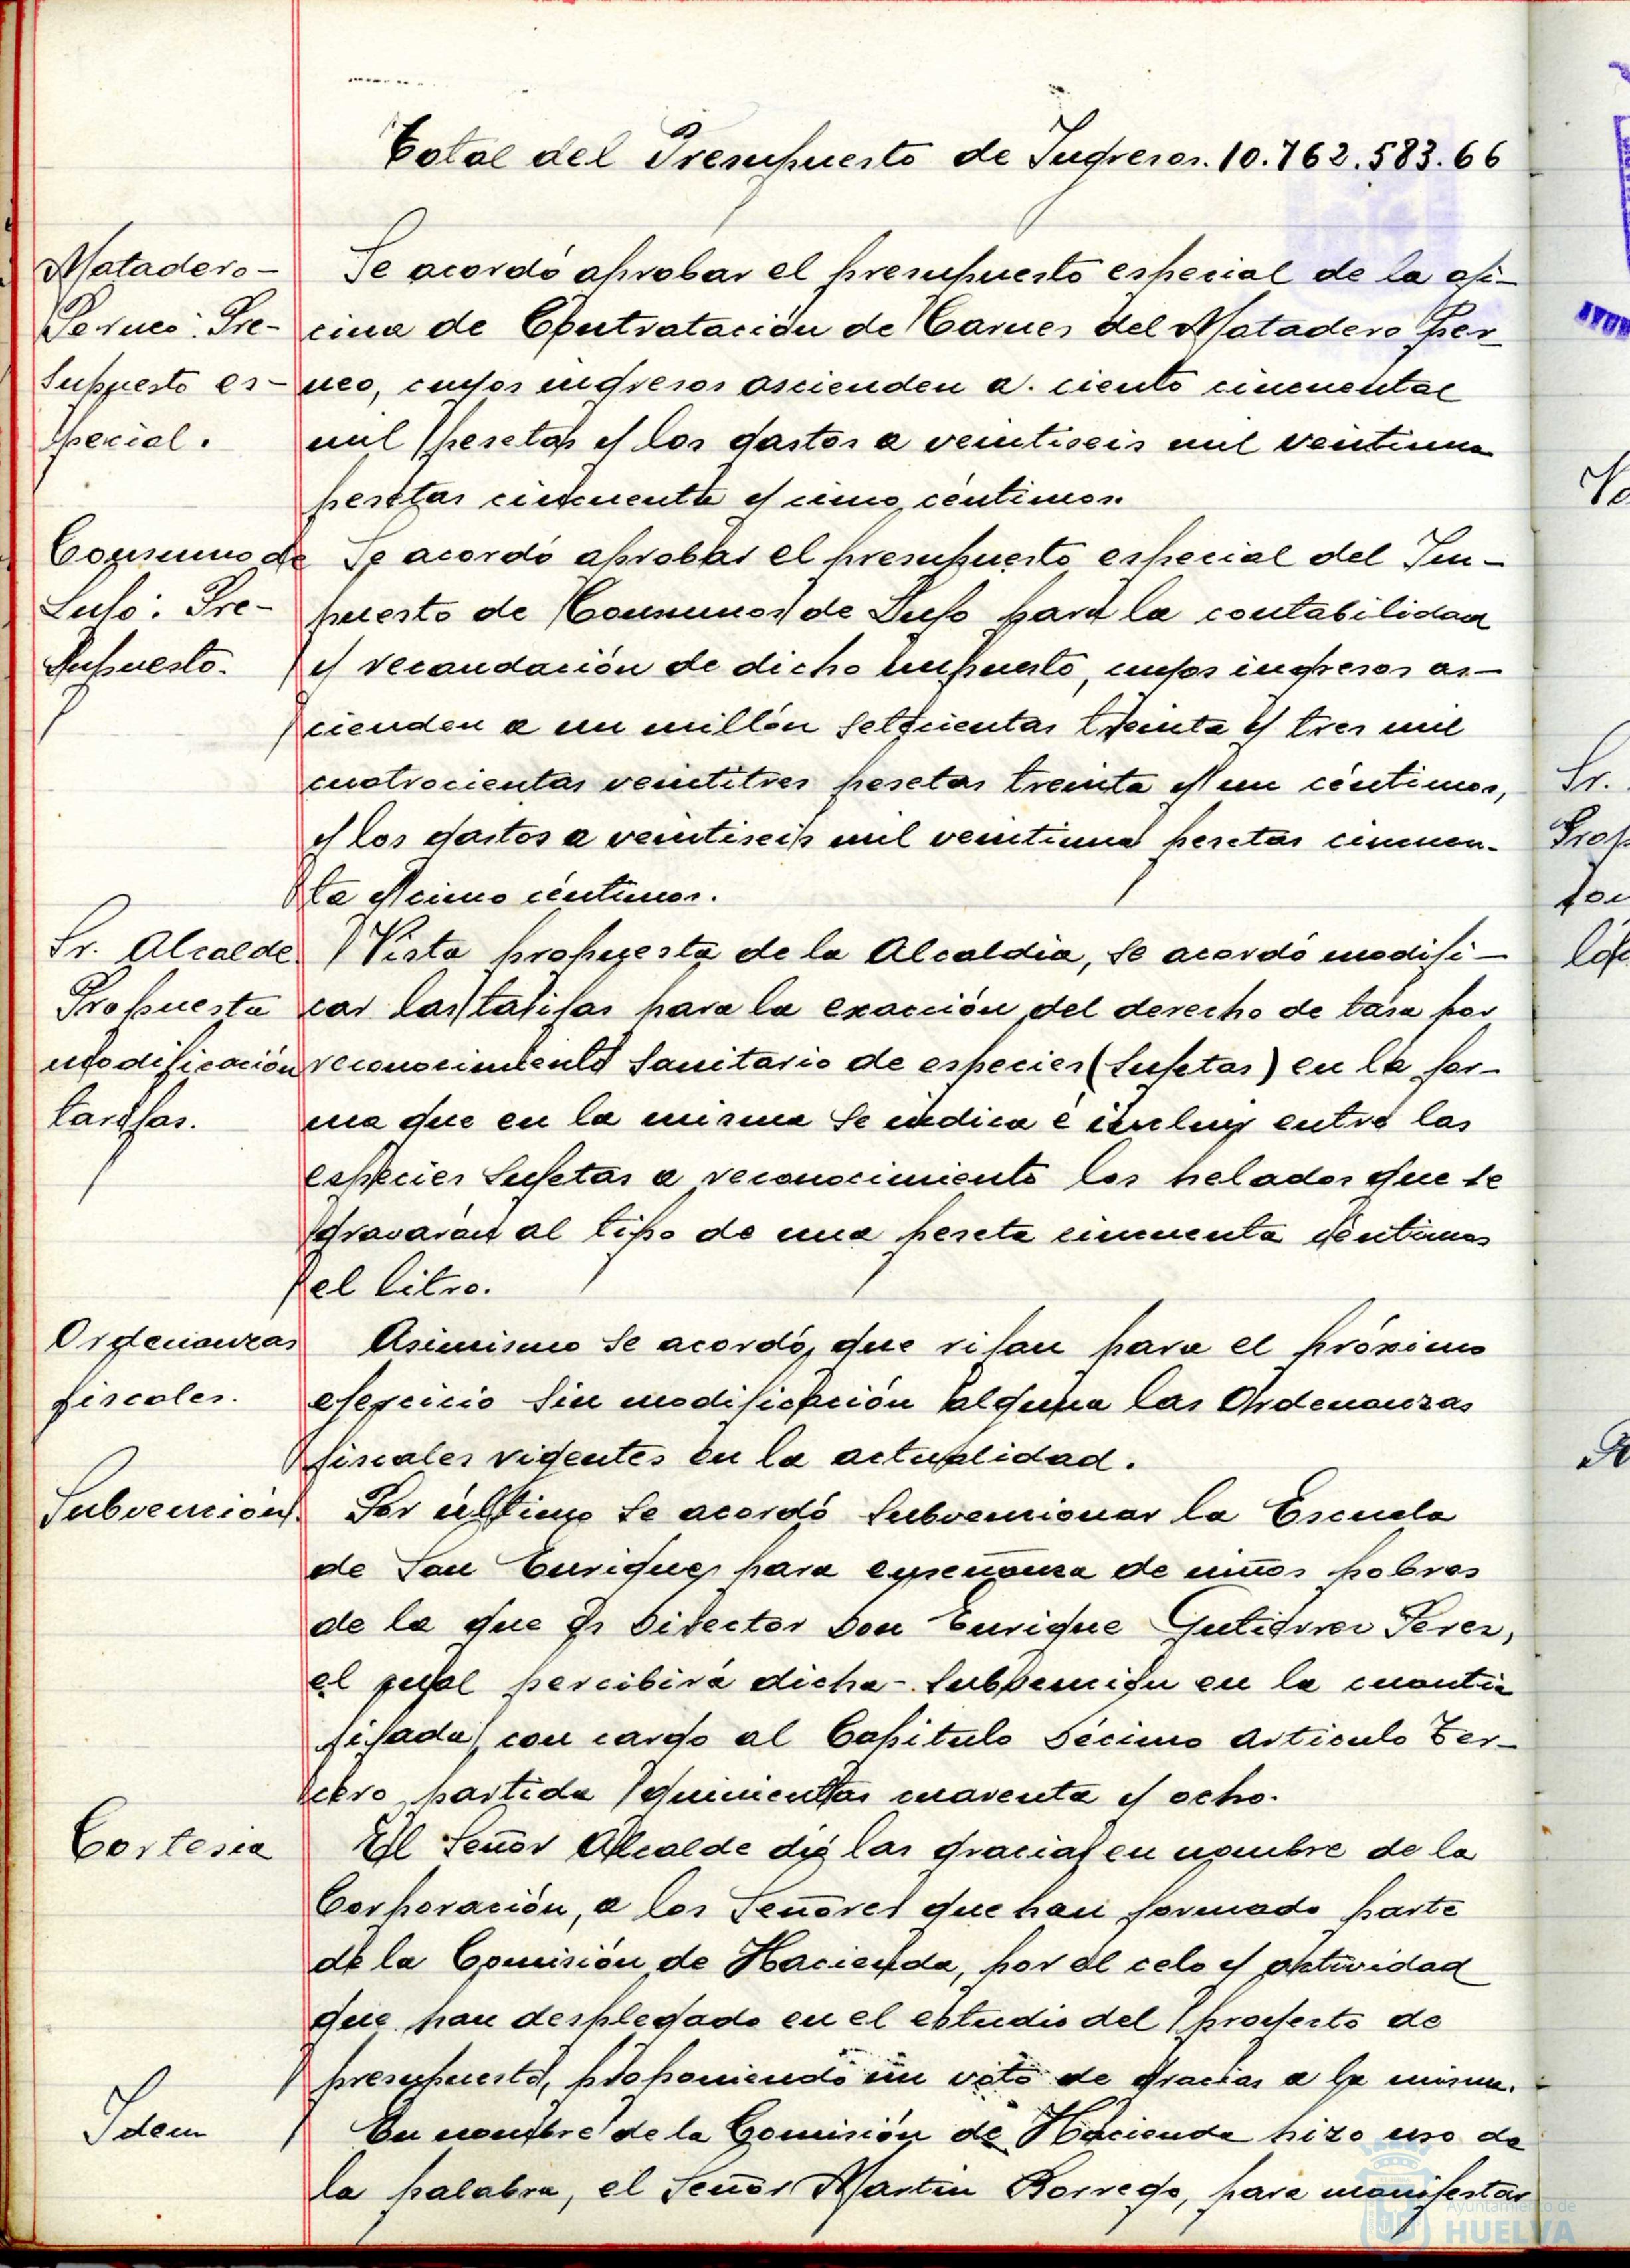 Total del Presupuesto de Ingresos. 10.762.583.66
Matadero-
Peruco: Pre-
supuesto es-
pecial.
Se acordó aprobar el presupuesto especial de la ofi-
cina de Contratación de Carnes del Matadero Per-
uco, cuyos ingresos ascienden a ciento cincuenta
mil pesetas y los gastos a veintiseis mil veintiuna
pesetas cincuenta y cinco céntimos.
Consumo de
Lujo: Pre-
supuesto.
Se acordó aprobar el presupuesto especial del Im-
puesto de Consumos de Lujo para la contabilidad
y recaudación de dicho impuesto, cuyos ingresos as-
cienden a un millón setecientas treinta y tres mil
cuatrocientas veintitres pesetas treinta y un céntimos,
y los gastos a veintiseis mil veintiuna pesetas cincuen-
ta y cinco céntimos.
Sr. Alcalde
Propuesta
modificación
tarifas.
Vista propuesta de la Alcaldía, se acordó modifi-
car las tarifas para la exacción del derecho de tasa por
reconocimiento sanitario de especies (sujetas) en la for-
ma que en la misma se indica e incluir entre las
especies sujetas a reconocimiento los helados que se
gravarán al tipo de una peseta cincuenta céntimos
el litro.
Ordenanzas
fiscales.
Asimismo se acordó, que rijan para el próximo
ejercicio sin modificación alguna las Ordenanzas
fiscales vigentes en la actualidad.
Subvención.
Por último se acordó subvencionar la Escuela
de San Enrique, para enseñanza de niños pobres
de la que es Director Don Enrique Gutiérrez Perez,
el cual percibirá dicha subvención en la cuantía
fijada, con cargo al Capitulo Décimo Articulo Ter-
cero partida quinientas cuarenta y ocho.
Cortesia
El Señor Alcalde dió las gracias en nombre de la
Corporación, a los Señores que han formado parte
de la Comisión de Hacienda, por el celo y actividad
que han desplegado en el estudio del proyecto de
presupuesto, proponiendo un voto de gracias a la misma.
Idem
En nombre de la Comisión de Hacienda hizo uso de
la palabra, el Señor Martin Borrego, para manifestar
Ayuntamiento de
HUELVA